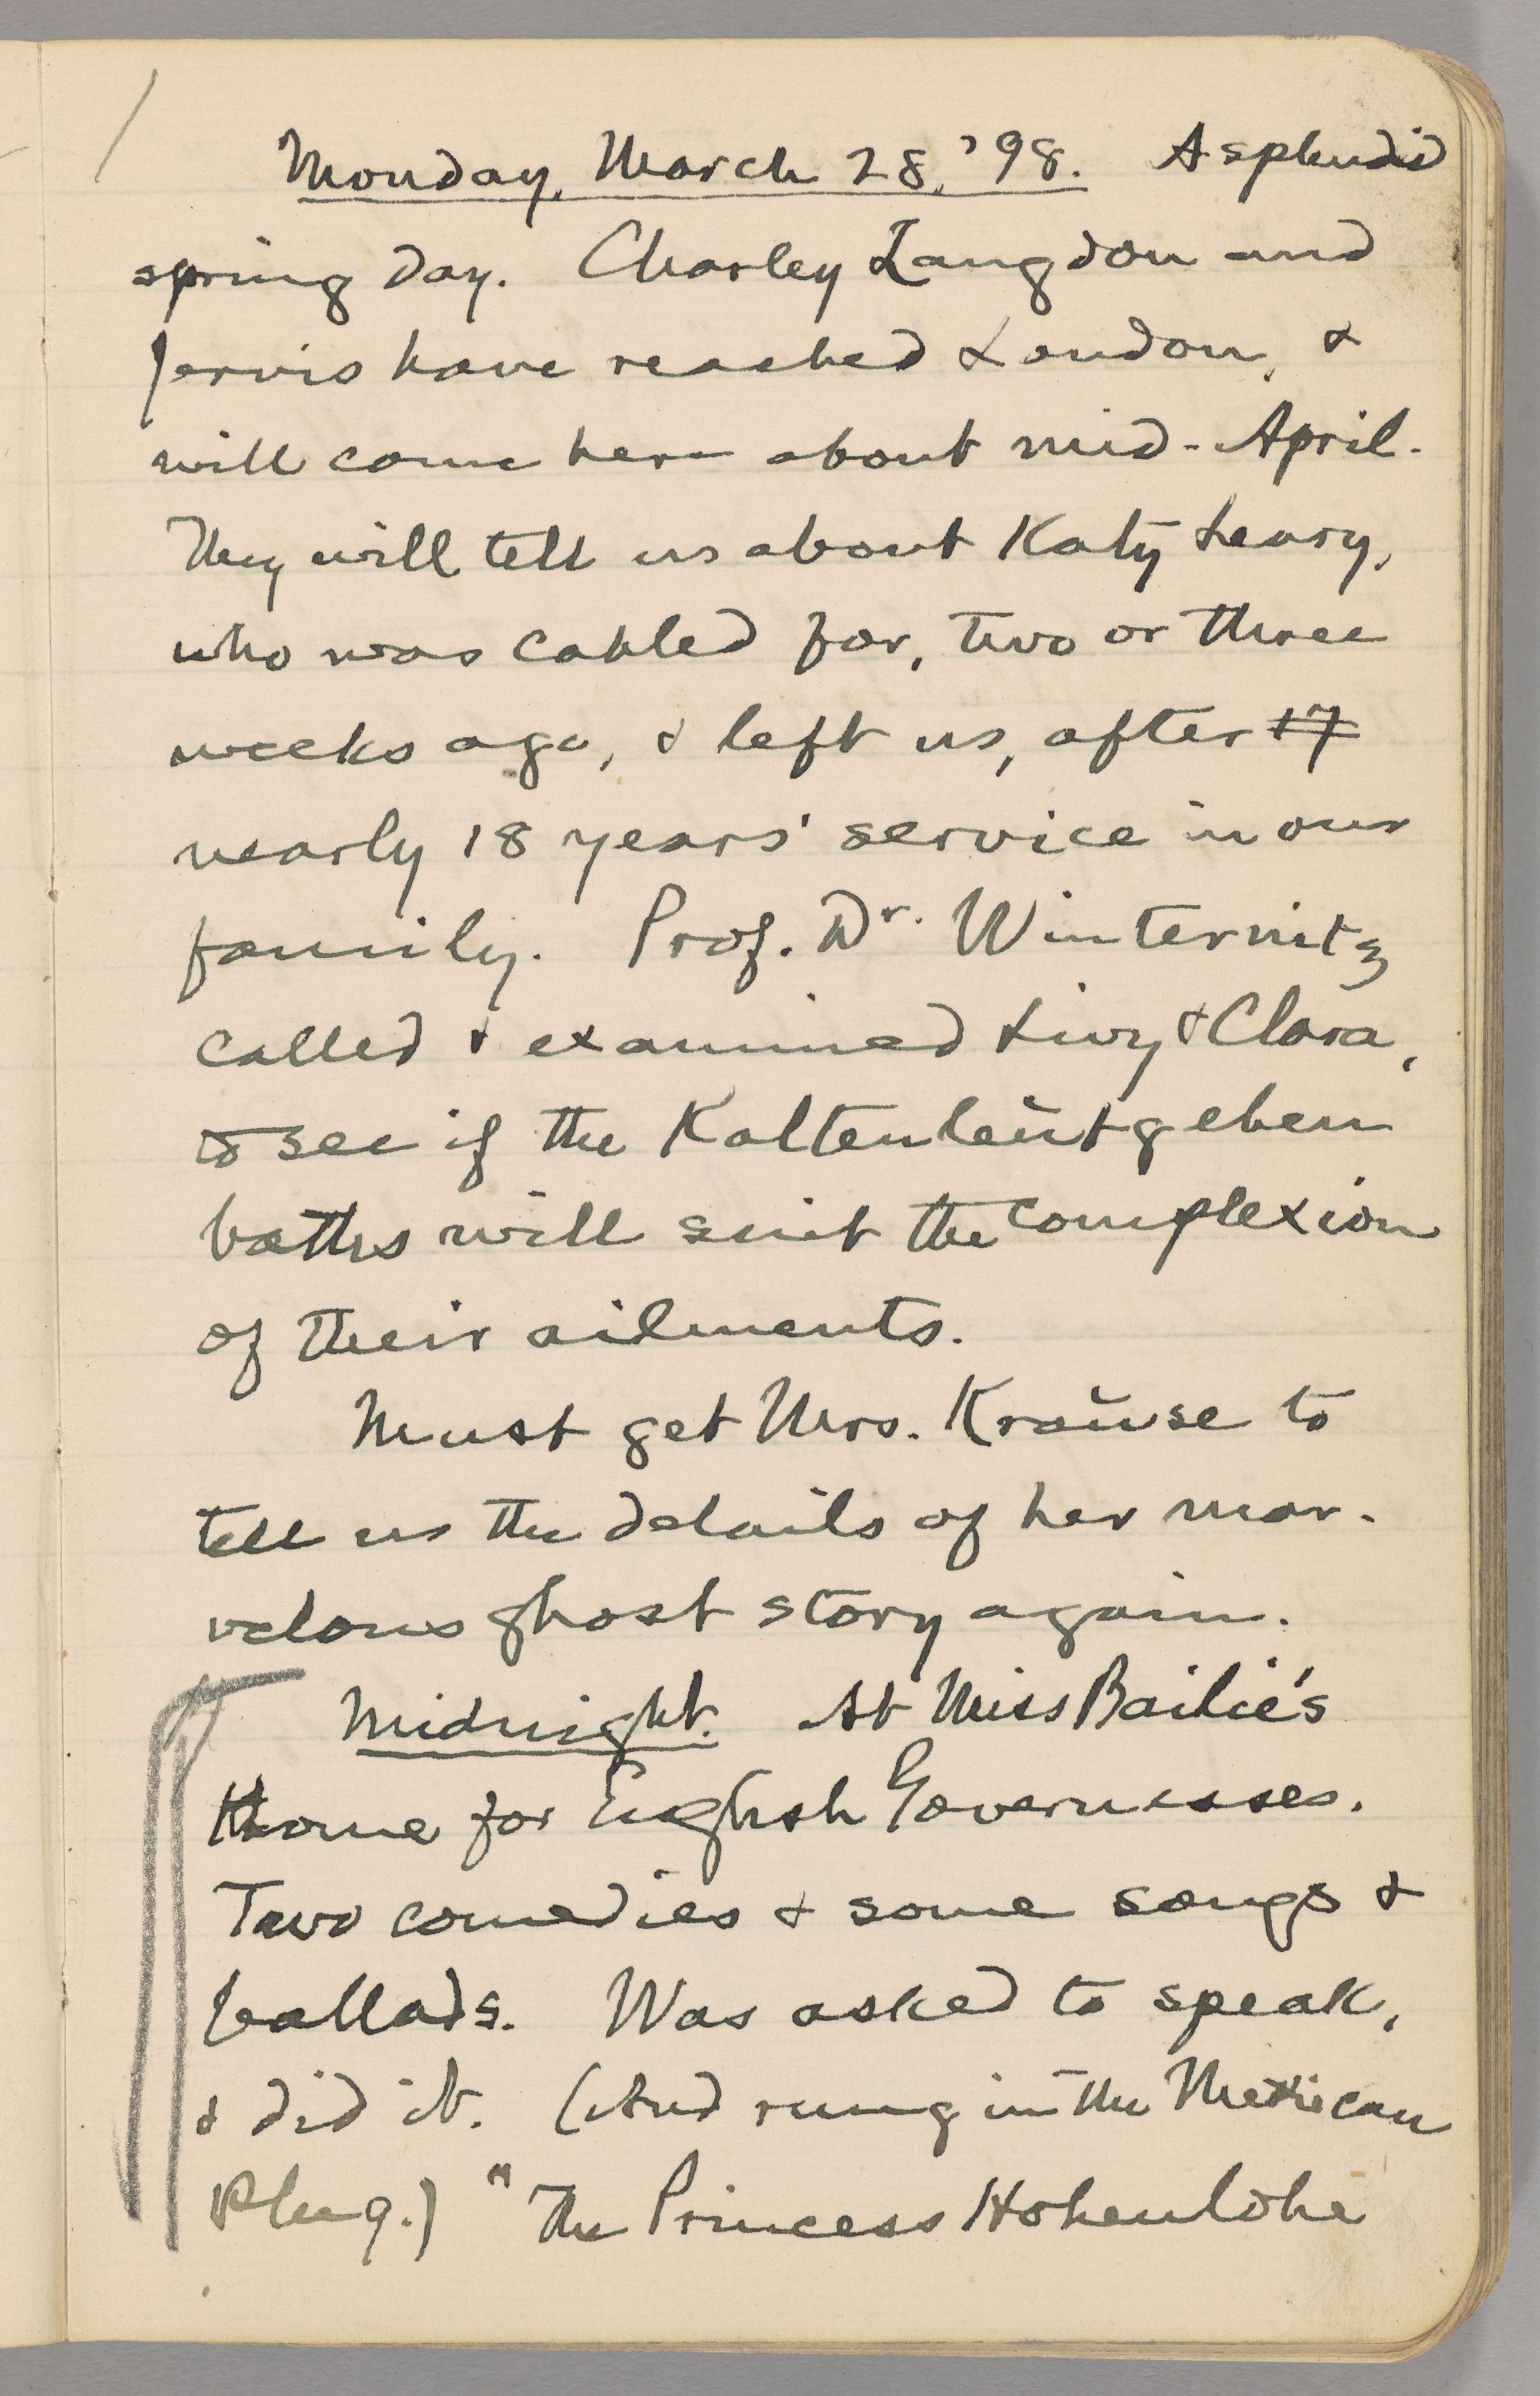 Monday, March 28, '98. A splendid
spring day. Charley Langdon and
Jervis have reached London, &
will come here about mid-April.
They will tell us about Katy Leary,
who was cabled for, two or three
weeks ago, & left us, after 17
nearly 18 years' service in our
family. Prof. Dr. Winternitz
called & examined Livy & Clara,
to see if the Kaltenleutgeben
baths will suit the complexion
of their ailments.
Must get Mrs. Krause to
tell us the details of her mar-
velous ghost story again.
Midnight. At Miss Bailie's
Home for English Governesses.
Two comedies & some songs &
ballads. Was asked to speak,
& did it. (And rung in the Mexican
Plug.) "The Princess Hohenlohe